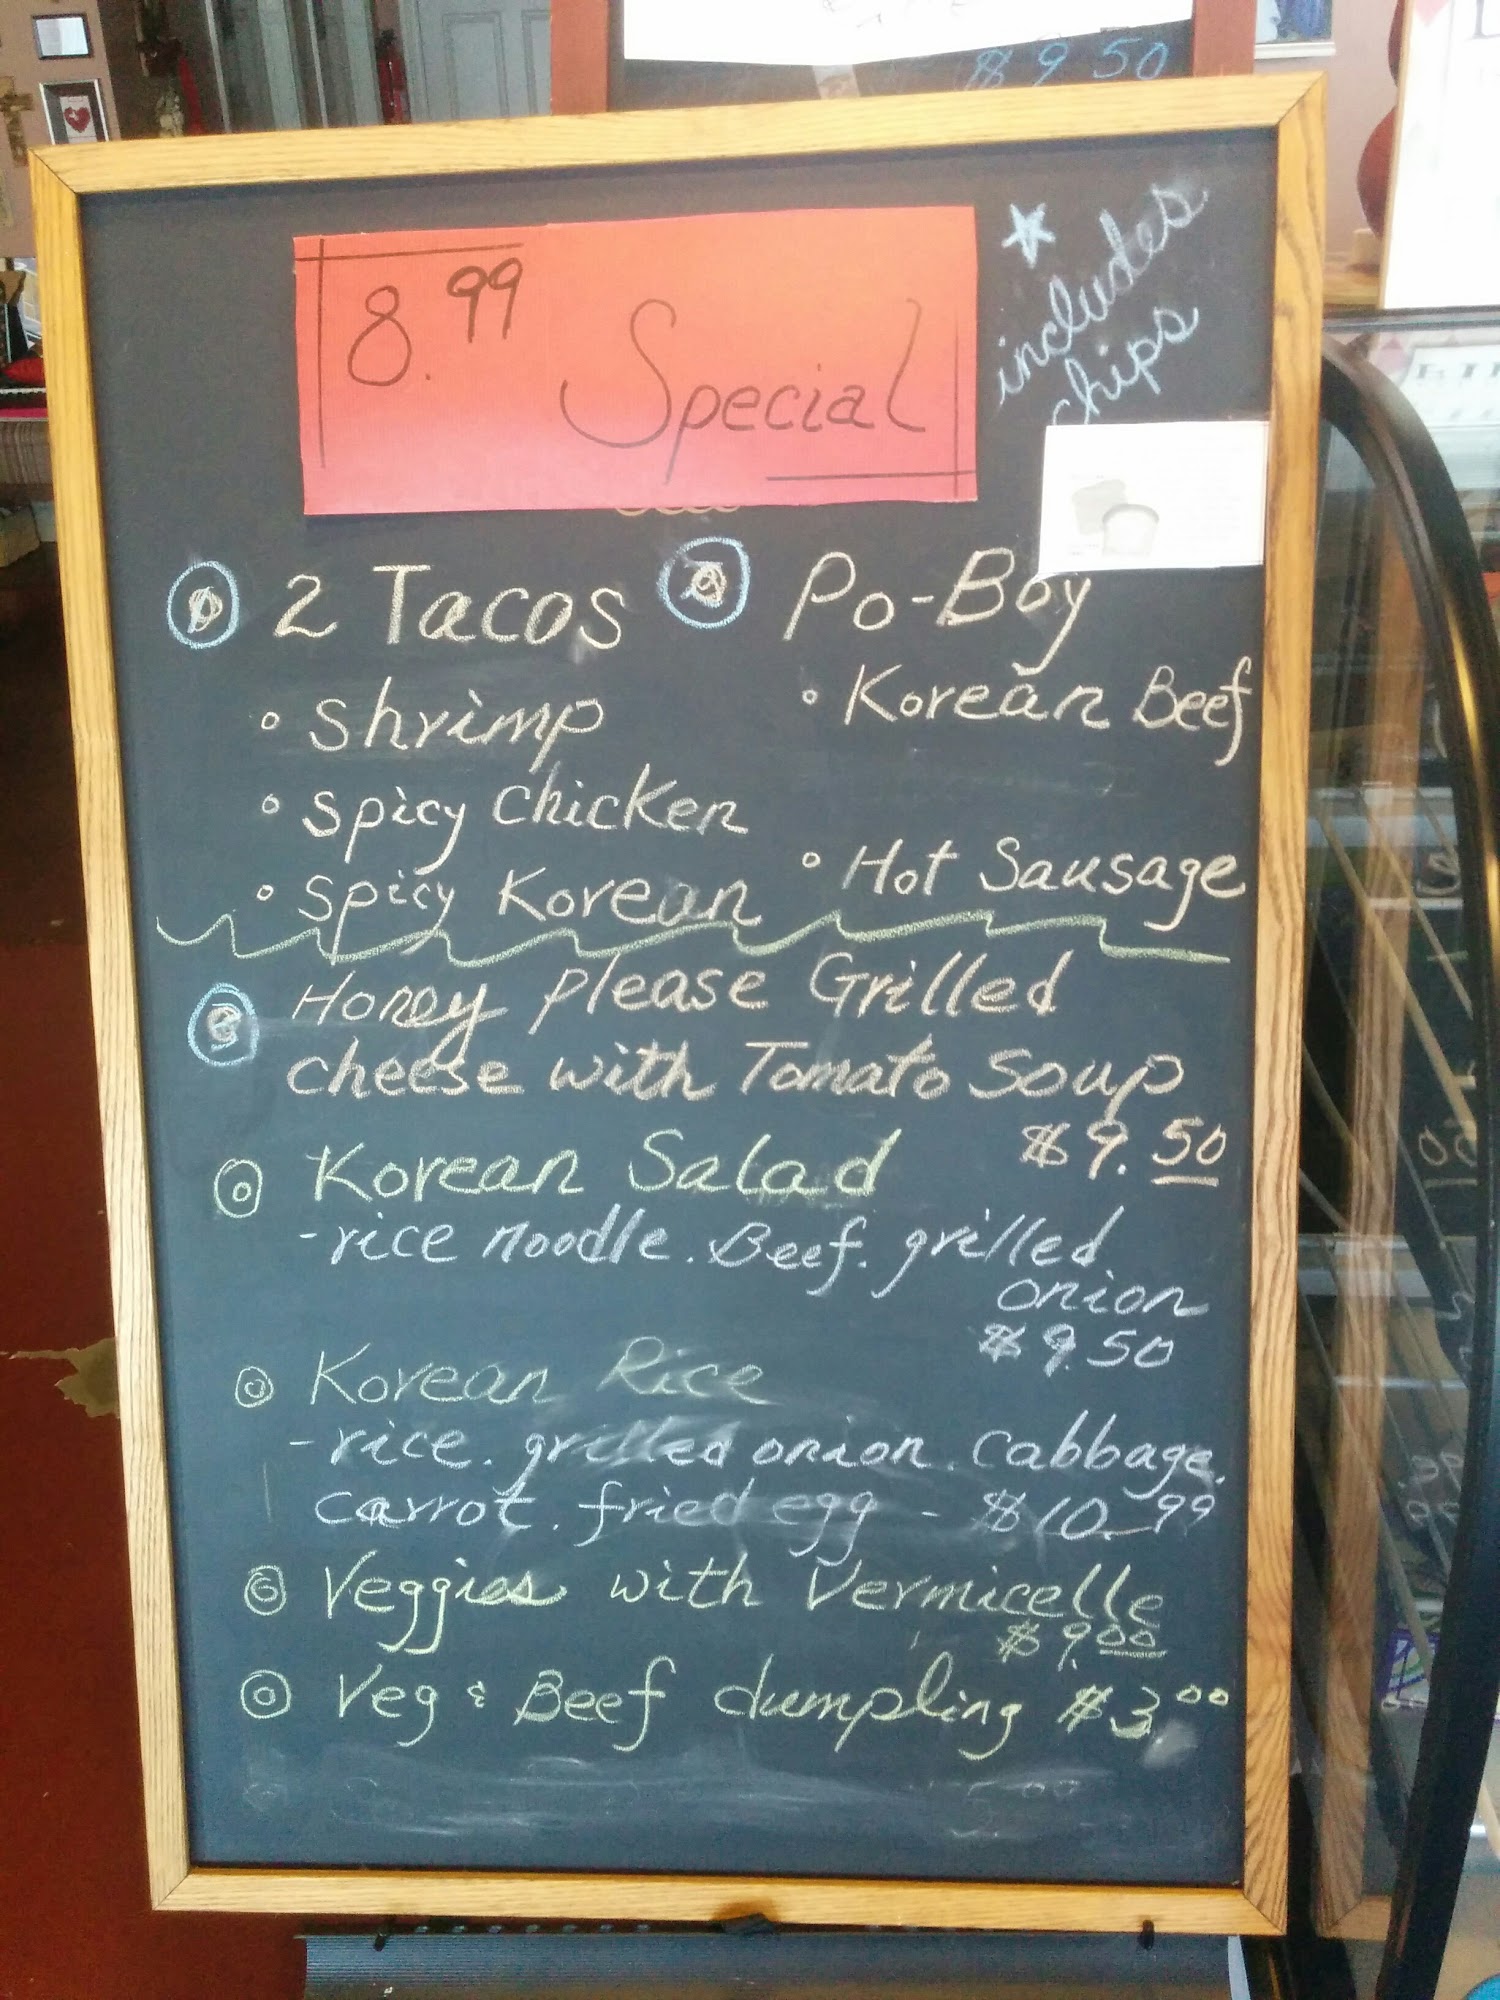 $9 50
8.99 Special
includes
chips
2 Tacos
• Shrimp
• Spicy Chicken
• Spicy Korean
Po-Boy
• Korean Beef
• Hot Sausage
Honey please Grilled
cheese with Tomato Soup
$9.50
Korean Salad
-rice noodle. Beef. grilled
onion
$9.50
Korean Rice
-rice. grilled onion. Cabbage.
carrot. fried egg - $10.99
Veggies with Vermicelle
$9.00
Veg & Beef dumpling $3.00